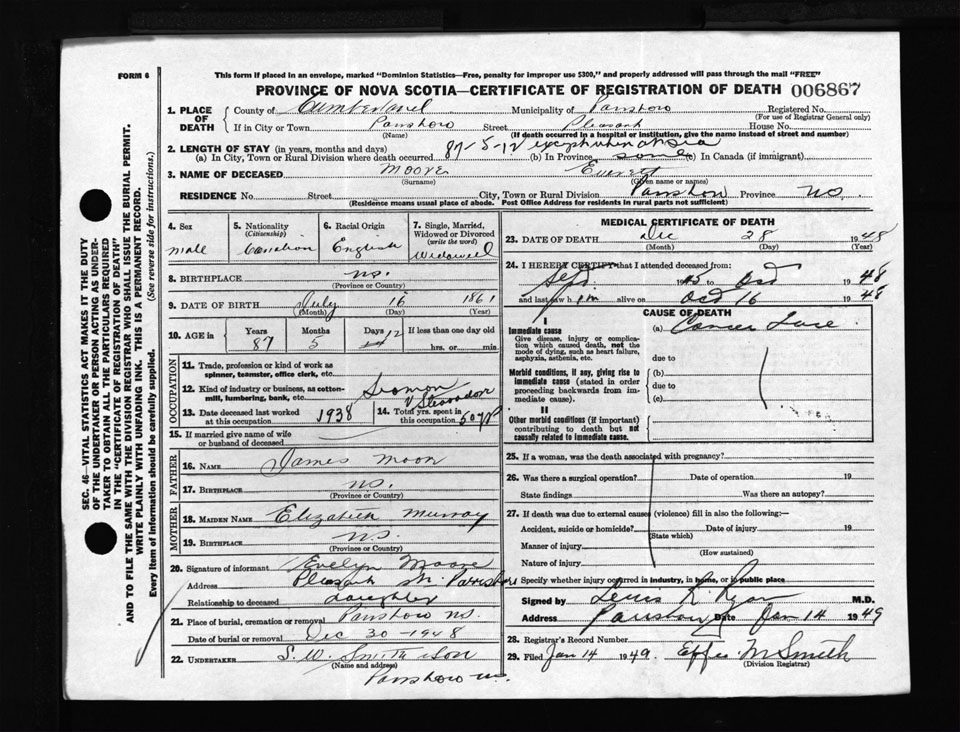 FORM 6
This form if placed in an envelope, marked "Dominion Statistics—Free, penalty for improper use $300," and properly addressed will pass through the mail "FREE"
PROVINCE OF NOVA SCOTIA—CERTIFICATE OF REGISTRATION OF DEATH 006867
1. PLACE OF DEATH County of Cumberland Municipality of Parrsboro Registered No.
(For use of Registrar General only)
If in City or Town Parrsboro Street Pleasant House No.
(Name) (If death occurred in a hospital or institution, give the name instead of street and number)
2. LENGTH OF STAY (in years, months and days)
(a) In City, Town or Rural Division where death occurred 87-5-12 except when at sea (b) In Province same (c) In Canada (if immigrant)
3. NAME OF DECEASED Moore Everett
(Surname) (Given name or names)
RESIDENCE No. Street City, Town or Rural Division Parrsboro Province N.S.
(Residence means usual place of abode. Post Office Address for residents in rural parts not sufficient)
SEC. 46—VITAL STATISTICS ACT MAKES IT THE DUTY
OF THE UNDERTAKER OR PERSON ACTING AS UNDER-
TAKER TO OBTAIN ALL THE PARTICULARS REQUIRED
IN THE "CERTIFICATE OF REGISTRATION OF DEATH"
AND TO FILE THE SAME WITH THE DIVISION REGISTRAR WHO SHALL ISSUE THE BURIAL PERMIT.
WRITE PLAINLY WITH UNFADING INK. THIS IS A PERMANENT RECORD.
Every item of Information should be carefully supplied. (See reverse side for instructions.)
4. Sex
male
5. Nationality
(Citizenship)
Canadian
6. Racial Origin
English
7. Single, Married,
Widowed or Divorced
(write the word)
Widowed
8. BIRTHPLACE N.S.
(Province or Country)
9. DATE OF BIRTH July 16 1861
(Month) (Day) (Year)
10. AGE in Years Months Days If less than one day old
87 5 12 hrs. or min.
OCCUPATION
11. Trade, profession or kind of work as
spinner, teamster, office clerk, etc.
12. Kind of industry or business, as cotton-
mill, lumbering, bank, etc. Seaman
& Stevedor
13. Date deceased last worked
at this occupation 1938
14. Total yrs. spent in
this occupation 50 yr
15. If married give name of wife
or husband of deceased
FATHER
16. NAME James Moore
17. BIRTHPLACE N.S.
(Province or Country)
MOTHER
18. MAIDEN NAME Elizabeth Murray
19. BIRTHPLACE N.S.
(Province or Country)
20. Signature of informant Evelyn Moore
Address Pleasant St. Parrsboro
Relationship to deceased daughter
21. Place of burial, cremation or removal Parrsboro N.S.
Date of burial or removal Dec 30-1948
22. UNDERTAKER S. W. Smith & Son
(Name and address)
Parrsboro N.S.
MEDICAL CERTIFICATE OF DEATH
23. DATE OF DEATH Dec 28 1948
(Month) (Day) (Year)
24. I HEREBY CERTIFY that I attended deceased from:
Sept 1945 to Oct 1948
and last saw him alive on Oct 16 1948
CAUSE OF DEATH
I
Immediate cause
Give disease, injury or complica-
tion which caused death, not the
mode of dying, such as heart failure,
asphyxia, asthenia, etc.
(a) Cancer Face
due to
Morbid conditions, if any, giving rise to
immediate cause (stated in order
proceeding backwards from im-
mediate cause).
(b)
due to
(c)
II
Other morbid conditions (if important)
contributing to death but not
causally related to immediate cause.
25. If a woman, was the death associated with pregnancy?
26. Was there a surgical operation? Date of operation 19
State findings Was there an autopsy?
27. If death was due to external causes (violence) fill in also the following:—
Accident, suicide or homicide? Date of injury 19
(State which)
Manner of injury
(How sustained)
Nature of injury
Specify whether injury occurred in industry, in home, or in public place
Signed by R. Ryan M.D.
Address Parrsboro Date Jan 14 1949
28. Registrar's Record Number
29. Filed Jan 14 1949 Effie M Smith
(Division Registrar)